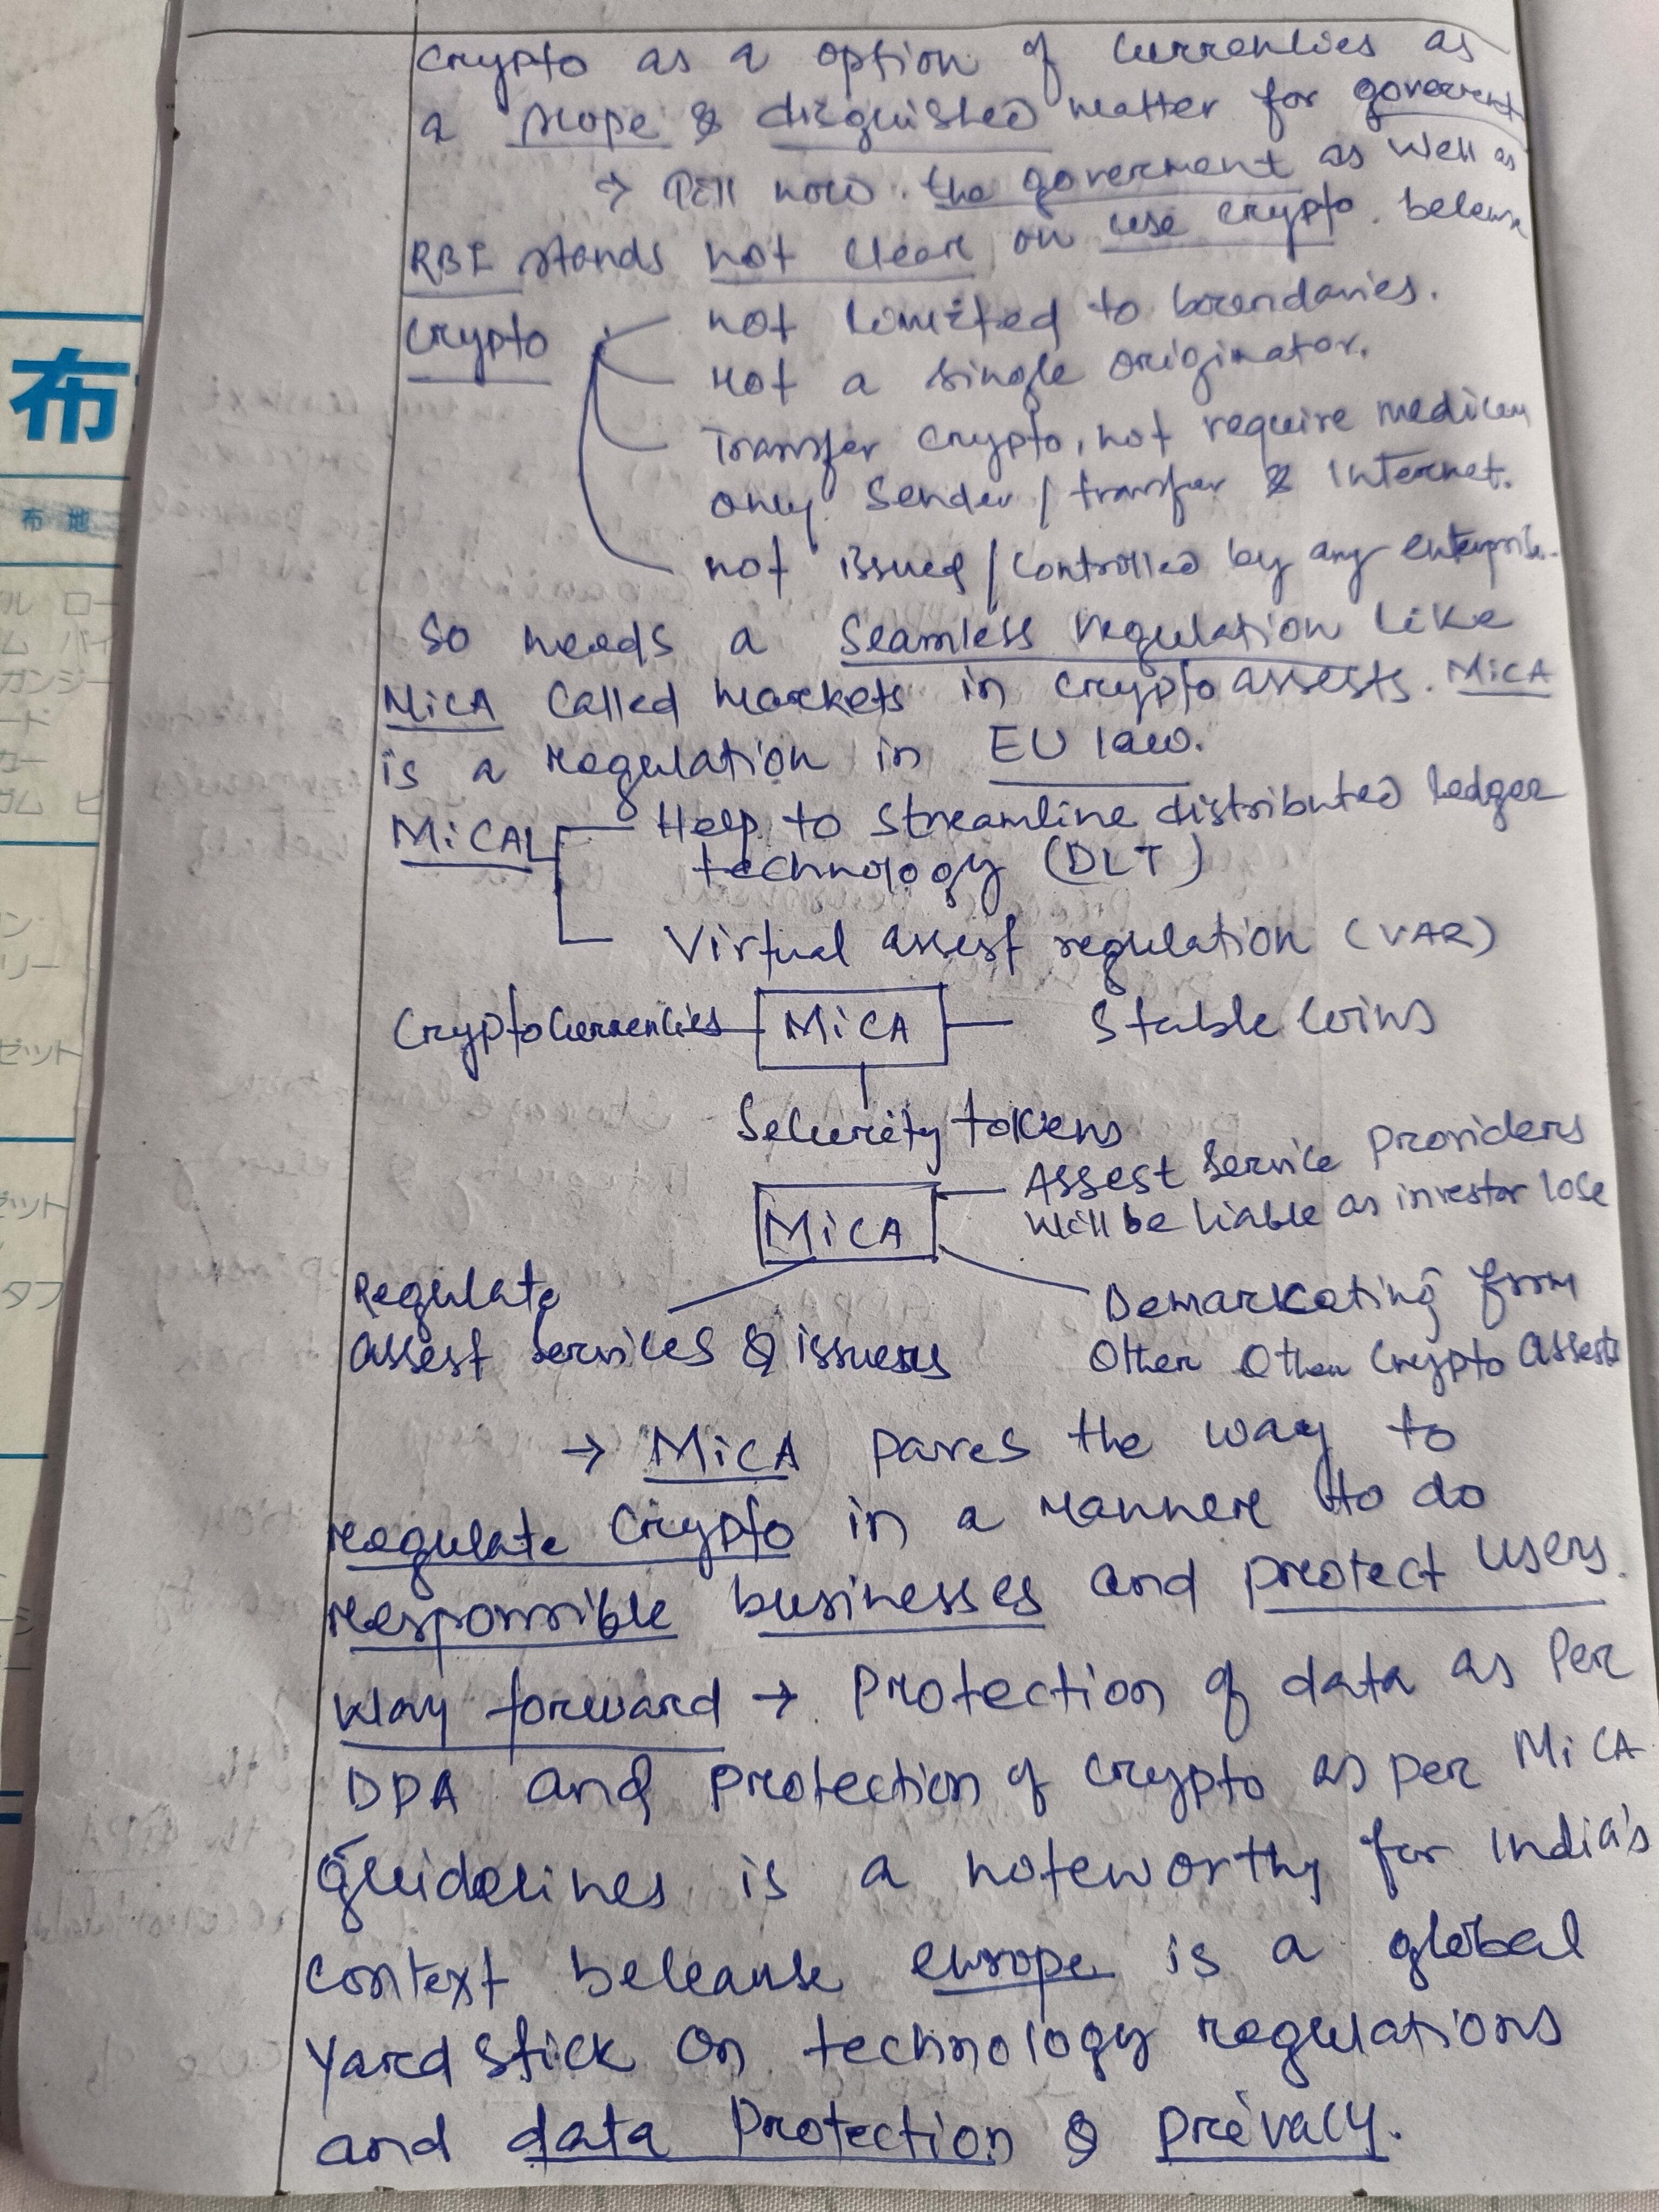 Crypto as a option of currencies as
a scope & disguished matter for goverent
→ Till now. the goverment as well as
RBI stands not clear on use crypto. because
Crypto
not limited to boundaries.
Not a single originator.
Transfer crypto, not require medium
only Sender / transfer & Internet.
not issued / controlled by any enterprise.
So needs a Seamless regulation like
MiCA called markets in crypto assests. MiCA
is a regulation in EU law.
MiCA
Help to streamline distributed ledger
technology (DLT)
Virtual assest regulation (VAR)
Cryptocurrencies MiCA Stable coins
Security tokens
Assest Service Providers
MiCA will be liable as investor lose
Regulate
Demarkating from
assest services & issuers
Other Other Crypto Assests
→ MiCA paves the way to
regulate Crypto in a manner to do
responsible businesses and protect users.
Way forward → Protection of data as per
DPA and protection of crypto as per MiCA
guidelines is a noteworthy for India's
context beleause europe is a global
Yard stick on technology regulations
and data Protection & prévacy.
布
布 地
ル ロー
ム バイ
ガンジー
ード
カー
ガム ビ
ン
リー
ゼット
ゼット
タフ